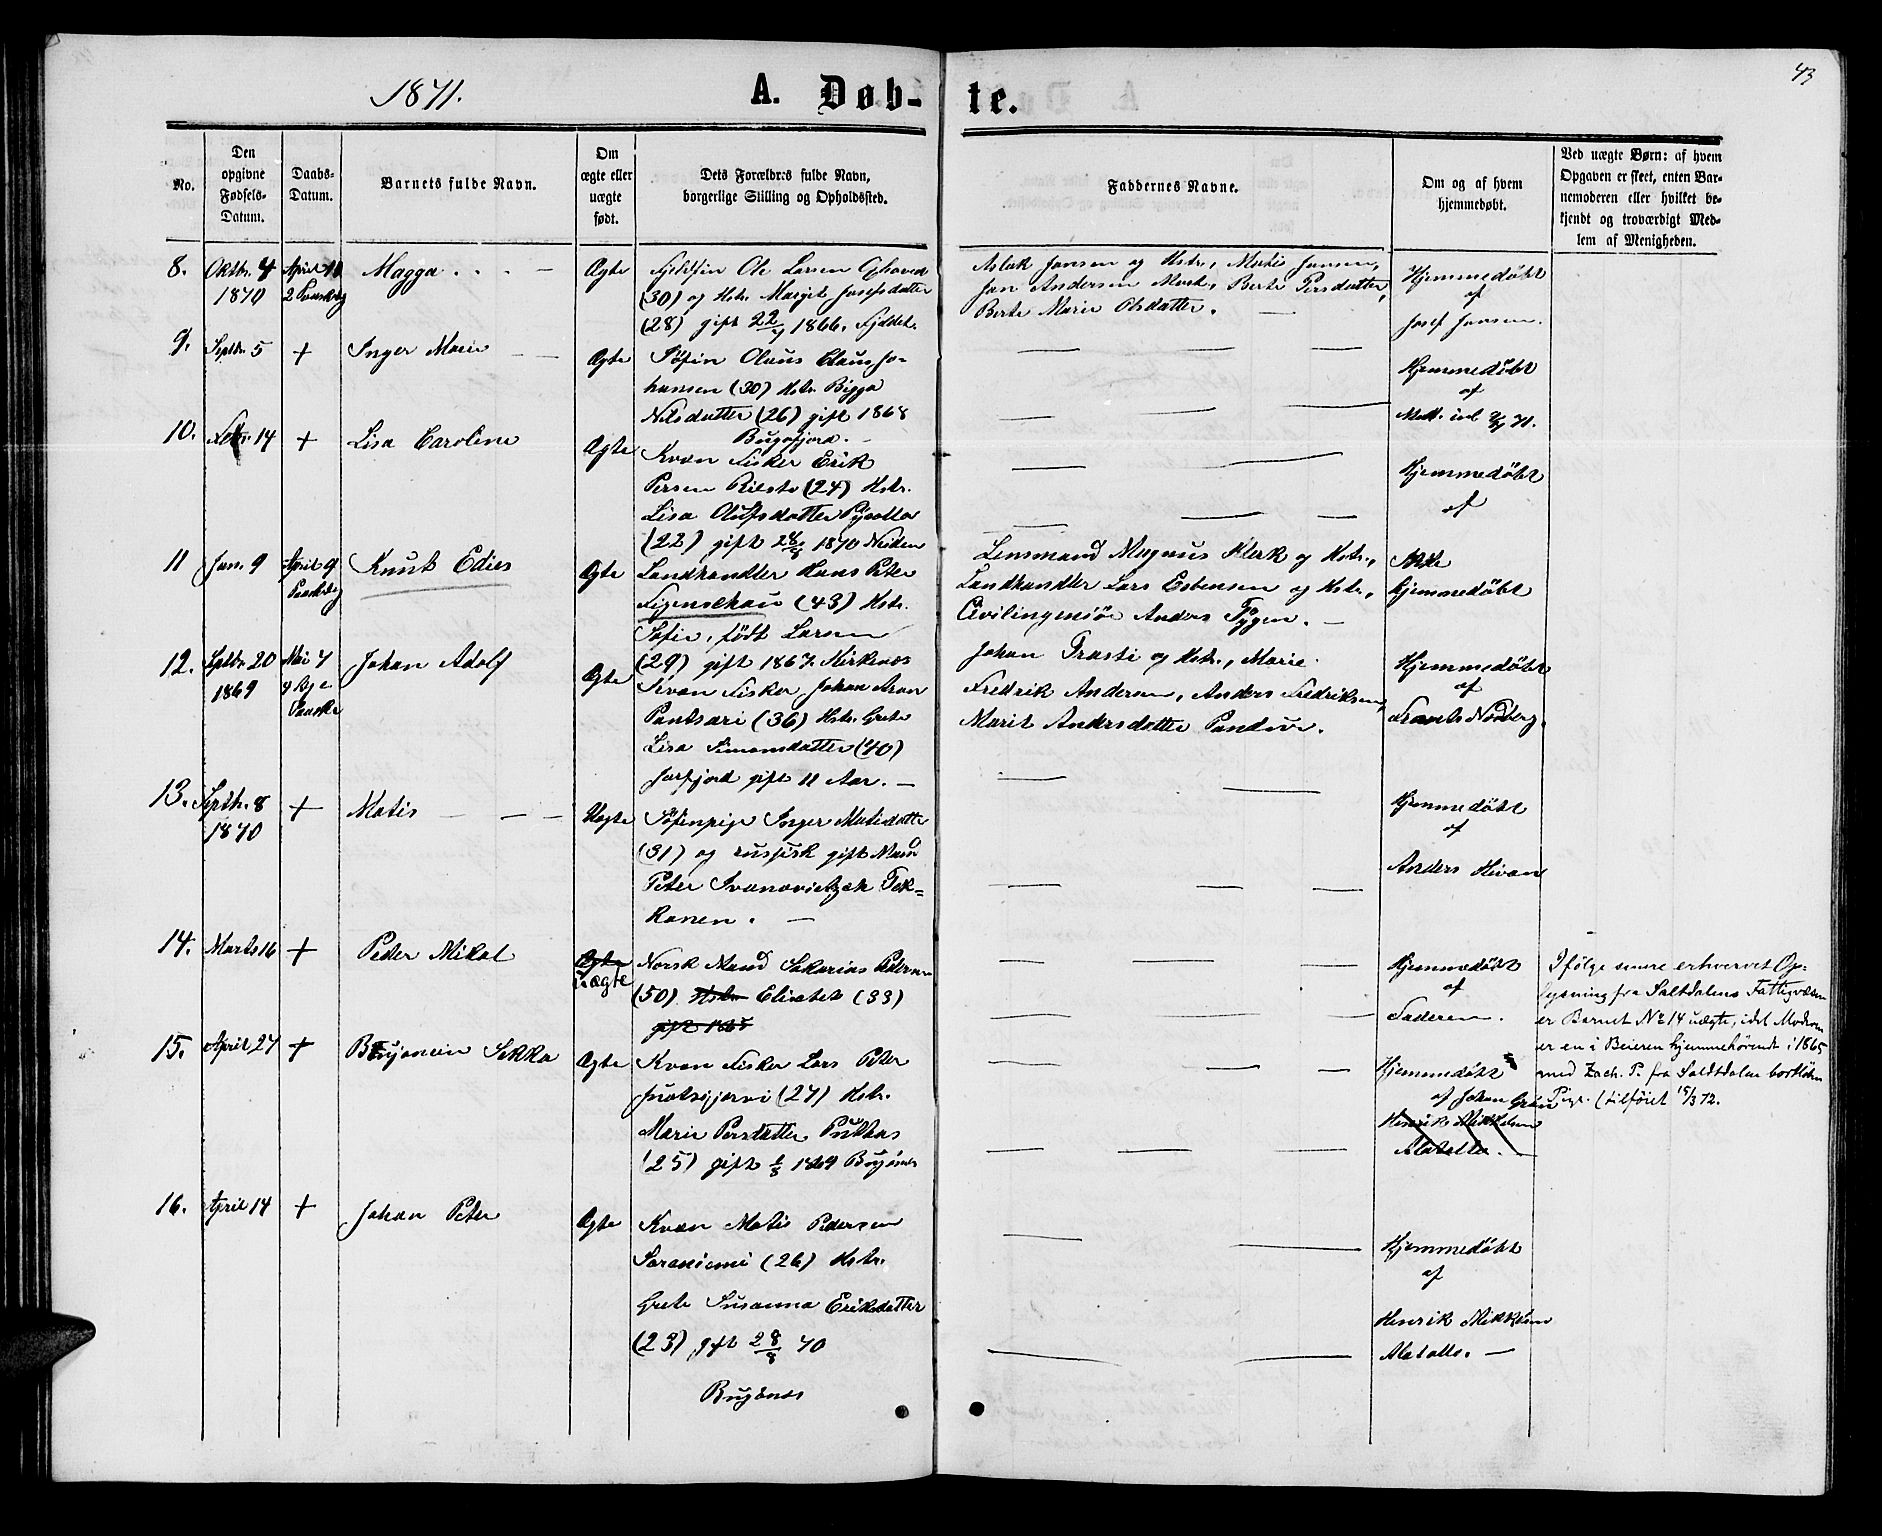 1871.
A. Døb-
te.
43
No.
Den
opgivne
Fødsels-
Datum.
Daabs-
Datum.
Barnets fulde Navn.
Om
ægte eller
uægte
født.
Dets Forældres fulde Navn,
borgerlige Stilling og Opholdssted.
Faddernes Navne.
Om og af hvem
hjemmedøbt.
Ved uægte Børn: af hvem
Opgaven er skeet, enten Bar-
nemoderen eller hvilket be-
kjendt og troværdigt Med-
lem af Menigheden.
8.
Oktbr. 4
1870
April 10
2 Paaskdg
Magga
Ægte
Fjeldfin Ole Larsen
(30) og Hstr. Margit Josefsdatter
(28) gift 1866.
Aslak Jansen og Hstr., Matis Jansen,
Jon Andersen Hstr., Berte Persdatter,
Berte Marie Olsdatter. —
Hjemmedøbt
af
Josef Jansen.
9.
Septbr. 5
+
Inger Marie
Ægte
Søfin Olaus Claus Jo-
hansen (30) Hstr. Bigga
Nilsdatter (26) gift 1868
Bugøfjord. —
Hjemmedøbt
af
10.
14
+
Lisa Caroline
Ægte
Kvæn Fisker Erik
Persen (24) Hstr.
Lisa Olufsdatter
(22) gift 28/8 1870 Neiden
Hjemmedøbt
af
11
Jan. 9
April 9
Paaskdg
Knut Edies
Ægte
Landhandler Hans Peter
Figenschau (43) Hstr.
Sofie, født Larsen
(29) gift 1867. Kirkenæs
Lensmand Magnus Klerk og Hstr.,
Landhandler Lars Esbensen og Hstr.,
Civilingeniør Anders Tygen. —
Ikke
hjemmedøbt
12.
Septbr 20
1869
Mai 7
Paaske
Johan Adolf
Ægte
Kvæn Fisker Johan Aron
Pantsari (36) Hstr. Grete
Lisa Simonsdatter (40)
Jarfjord gift 11 Aar. —
Johan Trasti og Hstr., Marie
Fredrik Andersen, Anders Fredriksen,
Marit Andersdatter
Hjemmedøbt
af
Frants Nordberg.
13.
Septbr. 8
1870
+
Matis
Uægte
Søfinpige Inger Matisdatter
(31) og russisk gift Mand
Peter Ivanovietzch Tek-
kanen. —
Hjemmedøbt
af
Anders
14.
Marts 16
+
Peder Mikal
Ægte
Uægte
Norsk Mand Sakarias Pedersen
(50) Hstr Elisabet (33)
gift 1865
Hjemmedøbt
af
Faderen.
Ifølge senere erhvervet Op-
lysning fra Saltdalens Fattigvæsen
er Barnet No 14 uægte, idet Moderen
er en i Beieren hjemmehørende i 1865
med Zach. P. fra Saltdalen bortløben
Pige. (tilføiet 15/3 72.
15.
April 27
+
Benjamin Sekka
Ægte
Kvæn Fisker Lars Peter
(27) Hstr.
Marie Persdatter
(25) gift 1/8 1869 Bugønes
Hjemmedøbt
af Johan Grøn
Henrik Mikkelsen
Alatalle. —
16.
April 14
+
Johan Peter
Ægte
Kvæn Matis Pedersen
Saraniemi (26) Hstr.
Grete Susanna Eriksdatter
(23) gift 28/8 70
Bugønes
Hjemmedøbt
af
Henrik Mikkelsen
Alatalle. —